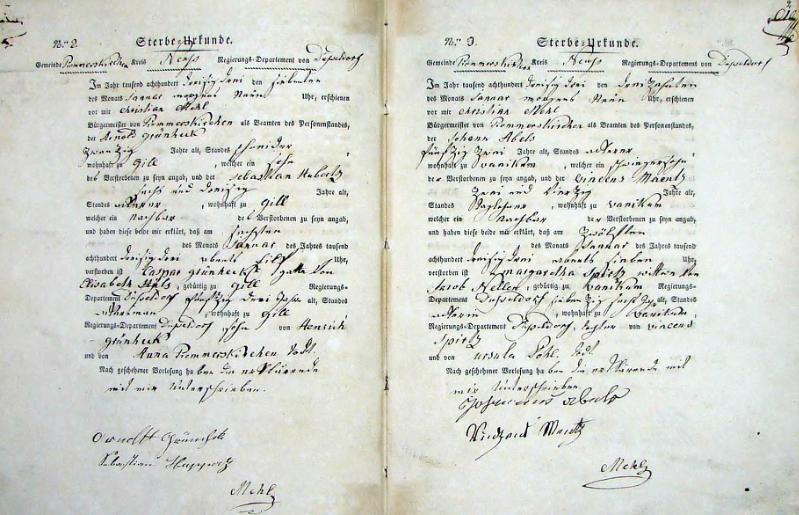 Nro 2.
Sterbe-Urkunde.
Gemeinde Rommerskirchen Kreis Neuss Regierungs-Departement von Düsseldorf
Im Jahr tausend achthundert dreisig drei den siebenten
des Monats Januar morgens Neün Uhr, erschienen
vor mir christian Mehl
Bürgermeister von Rommerskirchen als Beamten des Personenstandes,
der Arnold Grünheck
zwanzig Jahre alt, Standes
wohnhaft zu Gill, welcher ein Sohn
des Verstorbenen zu seyn angab, und der Sebastian Huberts
sechs und dreisig Jahre alt,
Standes Ackerer, wohnhaft zu Gill
welcher ein Nachbar des Verstorbenen zu seyn angab,
und haben diese beide mir erklärt, daß am sechsten
des Monats Januar des Jahres tausend
achthundert dreisig drei abends Eilf Uhr,
verstorben ist Caspar Grünheck gatte von
Elisabeth, gebürtig zu Gill Regierungs-
Departement Düsseldorf fünfzig drei Jahre alt, Standes
Ackersman, wohnhaft zu Gill
Regierungs-Departement Düsseldorf, Sohn von Henrich
Grünheck
und von Anna Rommerskirchen todt.
Nach geschehener Vorlesung haben die erklärende
mit mir unterschrieben.
Sebastian Huppertz
Mehl
Nro 3.
Sterbe-Urkunde.
Gemeinde Rommerskirchen Kreis Neuss Regierungs-Departement von Düsseldorf
Im Jahr tausend achthundert dreisig drei den dreizehnten
des Monats Januar morgens Neün Uhr, erschienen
vor mir christian Mehl
Bürgermeister von Rommerskirchen als Beamten des Personenstandes,
der Johann Abels
fünfzig zwei Jahre alt, Standes Ackerer
wohnhaft zu Vanikum, welcher ein schwigersohn
der Verstorbenen zu seyn angab, und der Vincens Maentz
zwei und vierzig Jahre alt,
Standes Taglöhner, wohnhaft zu Vanikum
welcher ein Nachbar der Verstorbenen zu seyn angab,
und haben diese beide mir erklärt, daß am zwölften
des Monats Januar des Jahres tausend
achthundert dreisig drei abends sieben Uhr,
verstorben ist margaretha Spirtz wittwe von
Jacob Nellen, gebürtig zu Vanikum Regierungs-
Departement Düsseldorf siebenzig sechs Jahre alt, Standes
Ackerin, wohnhaft zu Vanikum,
Regierungs-Departement Düsseldorf, tochter von Vincens
Spirtz
und von Ursula Pohl todt.
Nach geschehener Vorlesung haben die erklärende mit
mir unterschrieben
Johannes Abels
Mehl